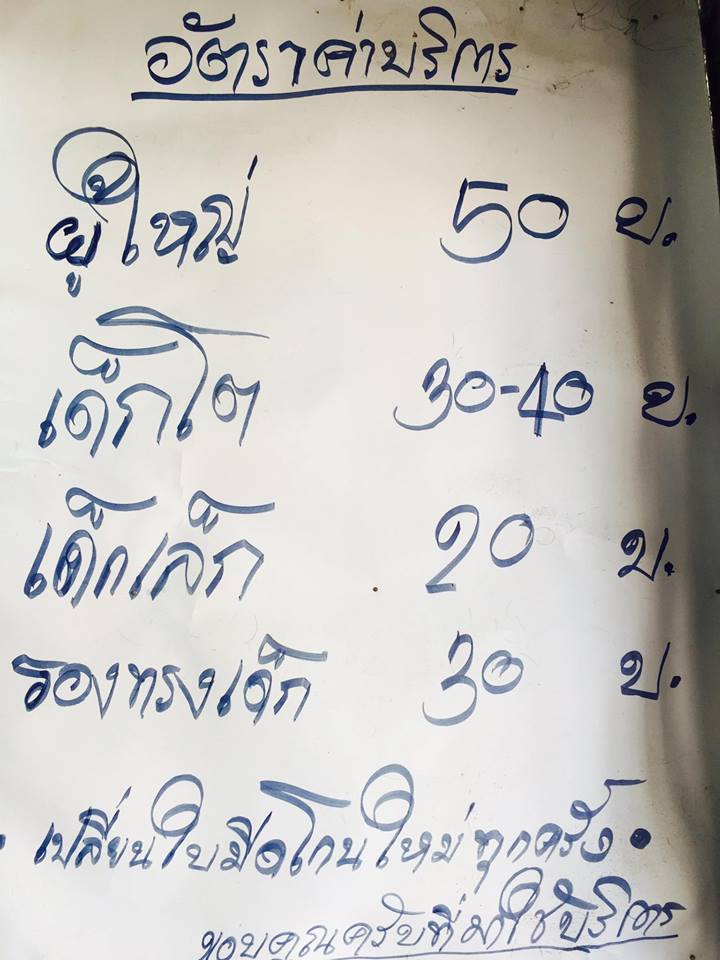 อัตราค่าบริการ
ผู้ใหญ่ 50 บ.
เด็กโต 30-40 บ.
เด็กเล็ก 20 บ.
รองทรงเด็ก 30 บ.
• เปลี่ยนใบมีดโกนใหม่ทุกครั้ง •
ขอบคุณครับที่มาใช้บริการ